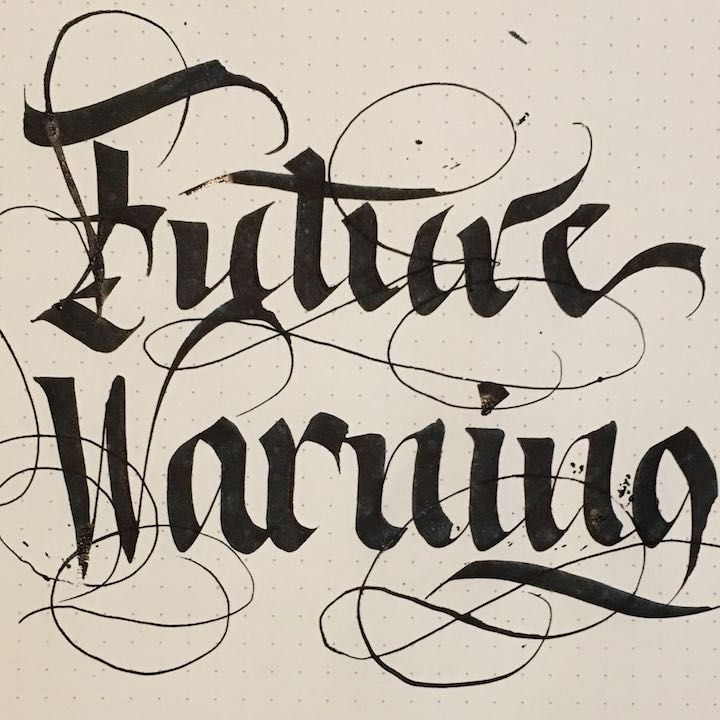 Future
Warning